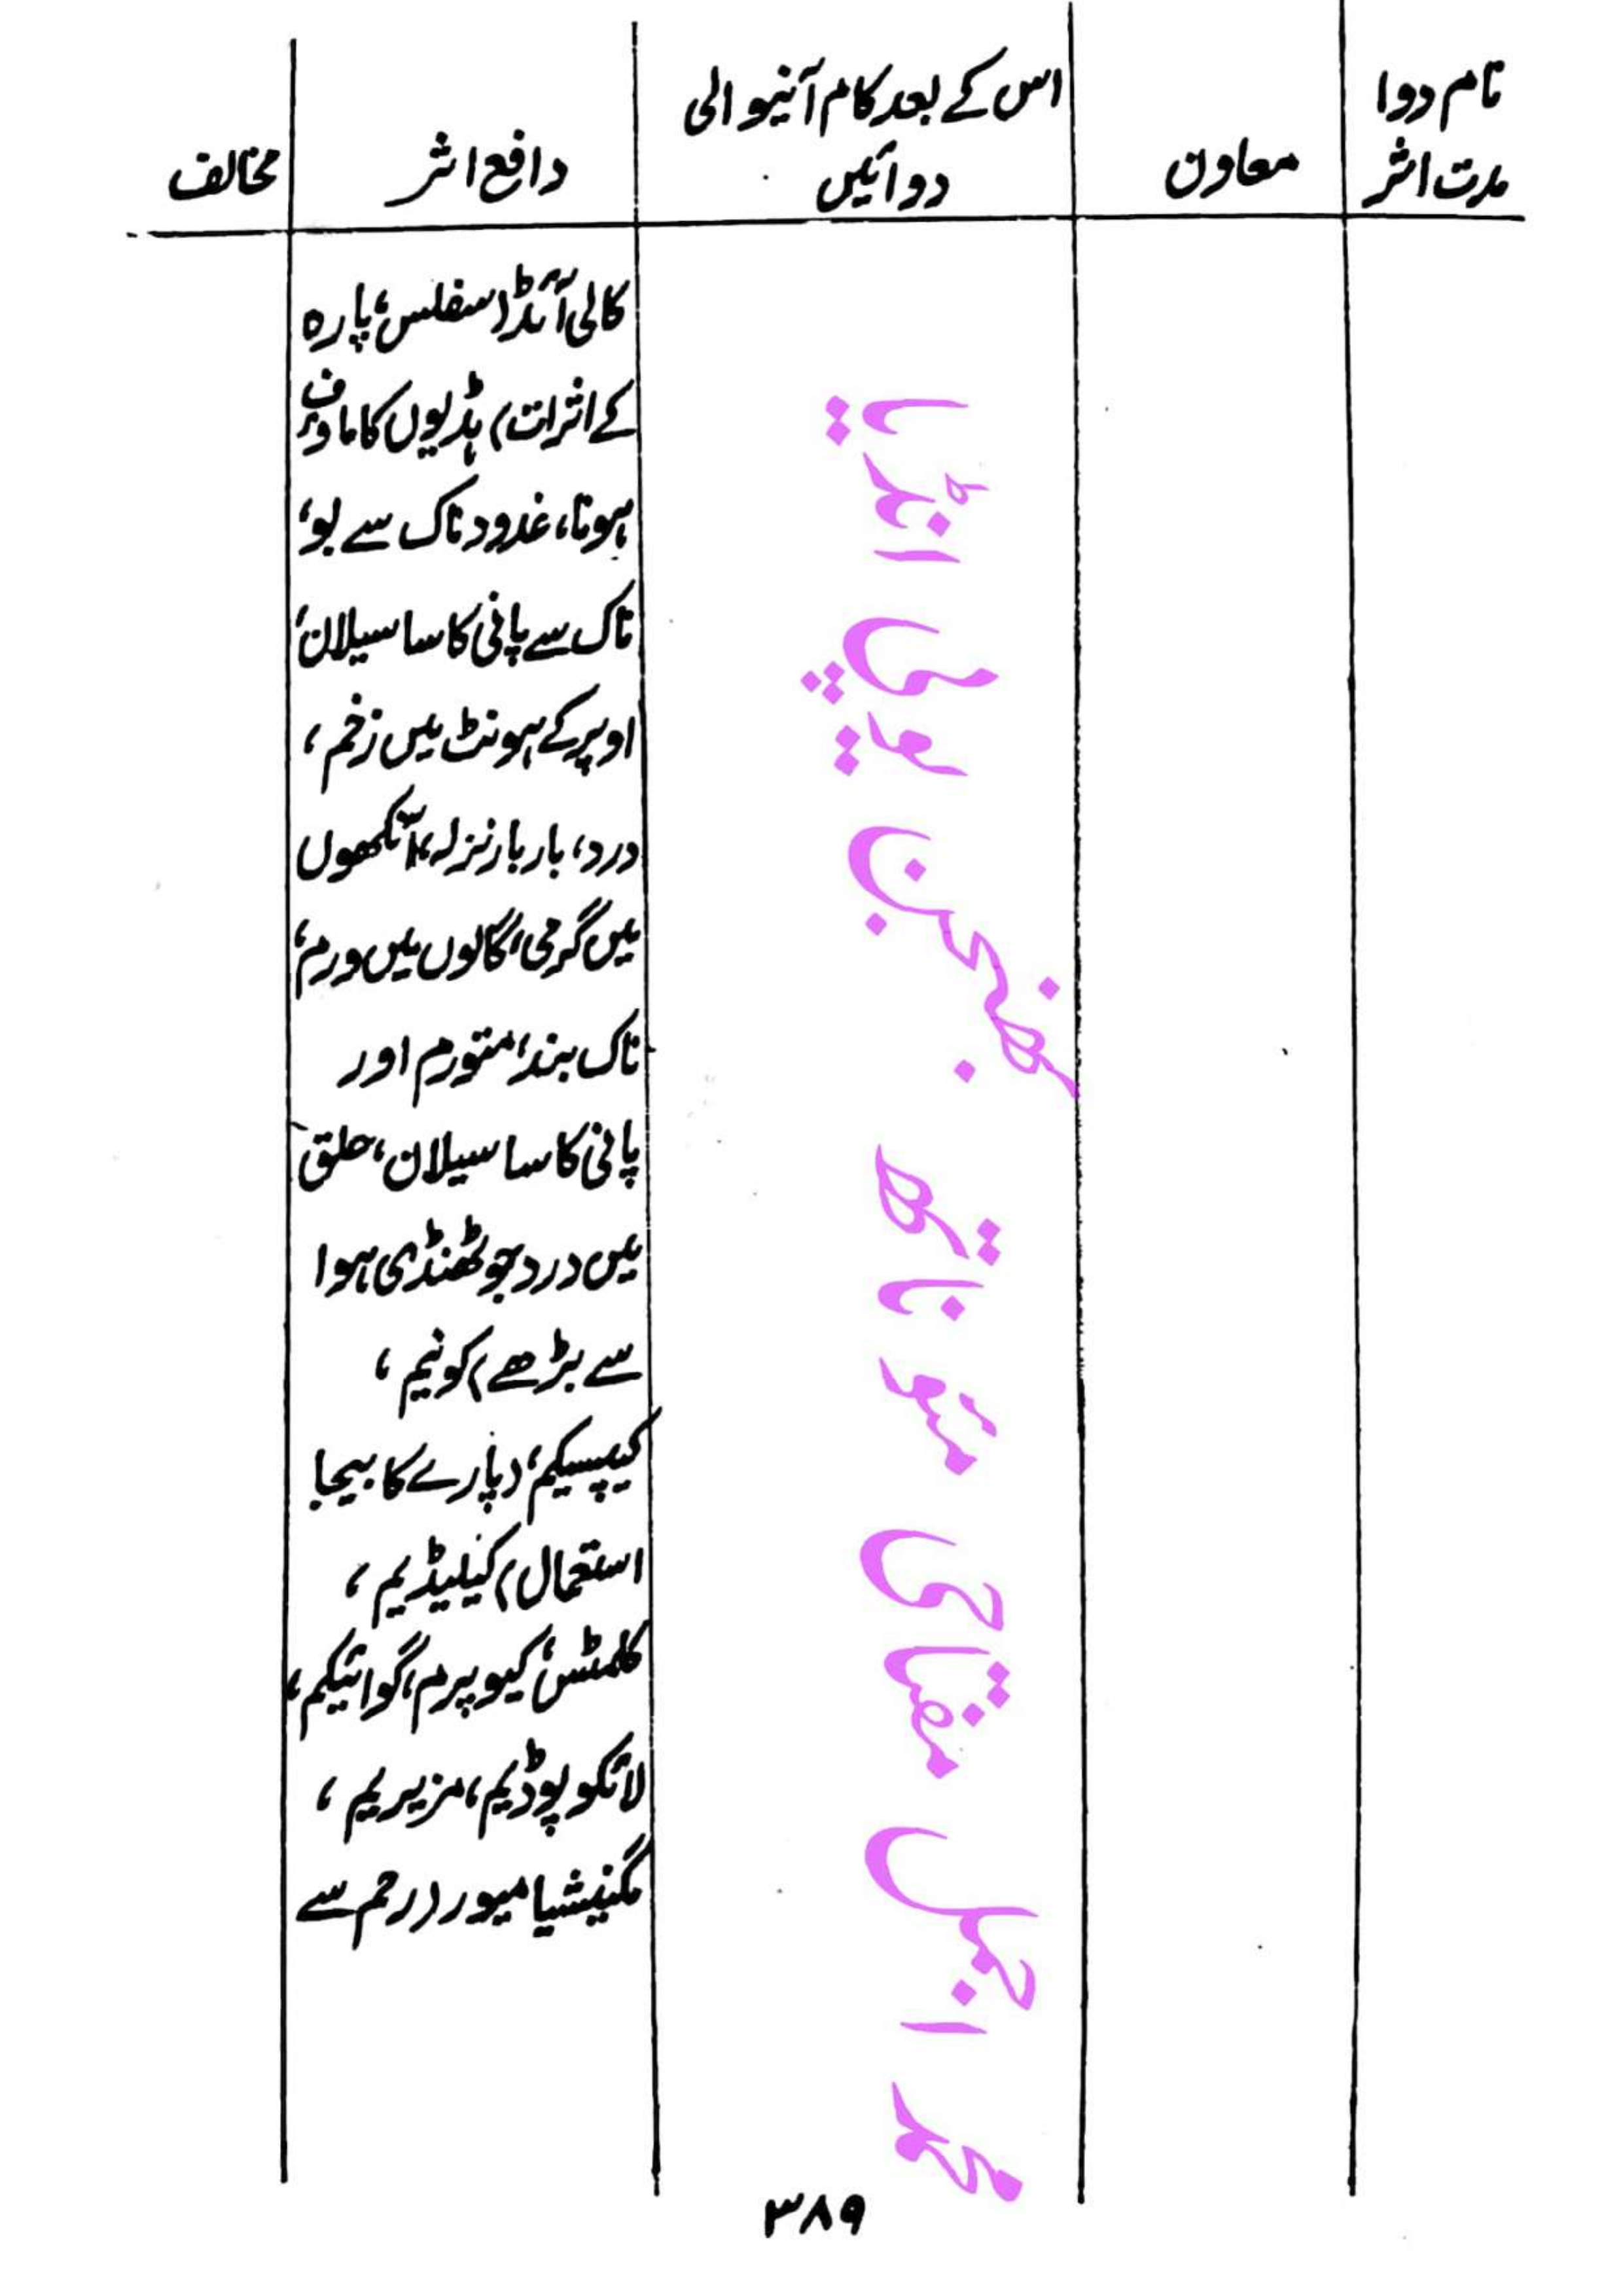 نام دوا
مدت اثر
معاون
اس کے بعد کام آنیوالی
دوائیں
دافع اثر
مخالف
کالی آئڈ (سفلس، پارہ
کے اثرات) ہڈیوں کا ماؤف
ہونا، غدود ناک سے بو،
ناک سے پانی کا سا سیلان،
اوپر کے ہونٹ میں زخم،
درد، بار بار نزلہ، آنکھوں
میں گرمی، گالوں میں ورم،
ناک بند، متورم اور
پانی کا سا سیلان، حلق
میں درد جو ٹھنڈی ہوا
سے بڑھے) کونیم،
کیپسیکم، (پارے کا بیجا
استعمال) کیلیڈیم،
کلمٹس، کیوپرم، گوائیکم،
لائکوپوڈیم، مزیریم،
مگنیشیا میور (رحم سے
محمد اجمل مفتاحی مئو ناتھ بھنجن یوپی انڈیا
۳۸۹